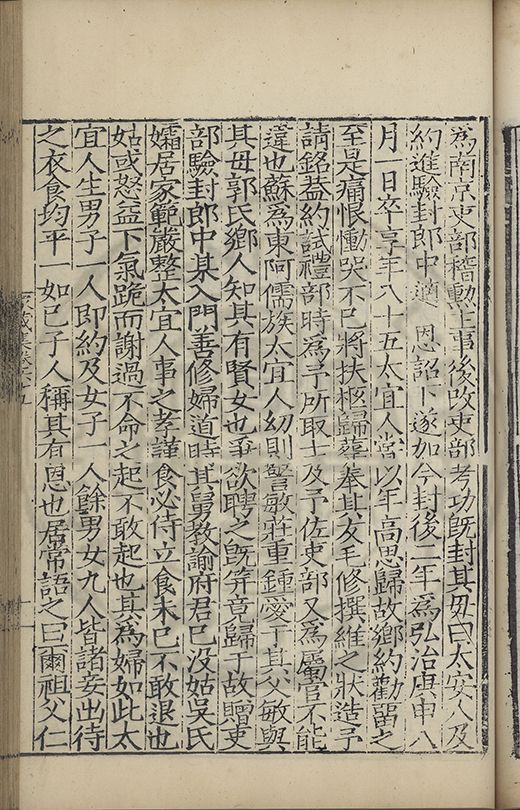 為南京吏部稽勳主事後改吏部考功旣封其母曰太安人及
約進驗封郎中適 恩詔下遂加今封後二年為弘治庚申八
月一日卒享年八十五太宜人嘗以年高思歸故鄉約勸留之
至是痛恨慟哭不已將扶柩歸葬奉其友毛修撰維之狀造予
請銘葢約試禮部時為予所取士及予佐吏部又為屬官不能
違也蘇為東阿儒族太宜人幼則警敏莊重鍾愛于其父敏與
其母郭氏鄉人知其有賢女也爭欲聘之旣笄竟歸于故贈吏
部驗封郎中某入門善修婦道時其舅教諭府君已没姑吳氏
孀居家範嚴整太宜人事之孝謹食必侍立食未已不敢退也
姑或怒益下氣跪而謝過不命之起不敢起也其為婦如此太
宜人生男子一人即約及女子一人餘男女九人皆諸妾出待
之衣食均平一如已子人稱其有恩也居常語之曰爾祖父仁